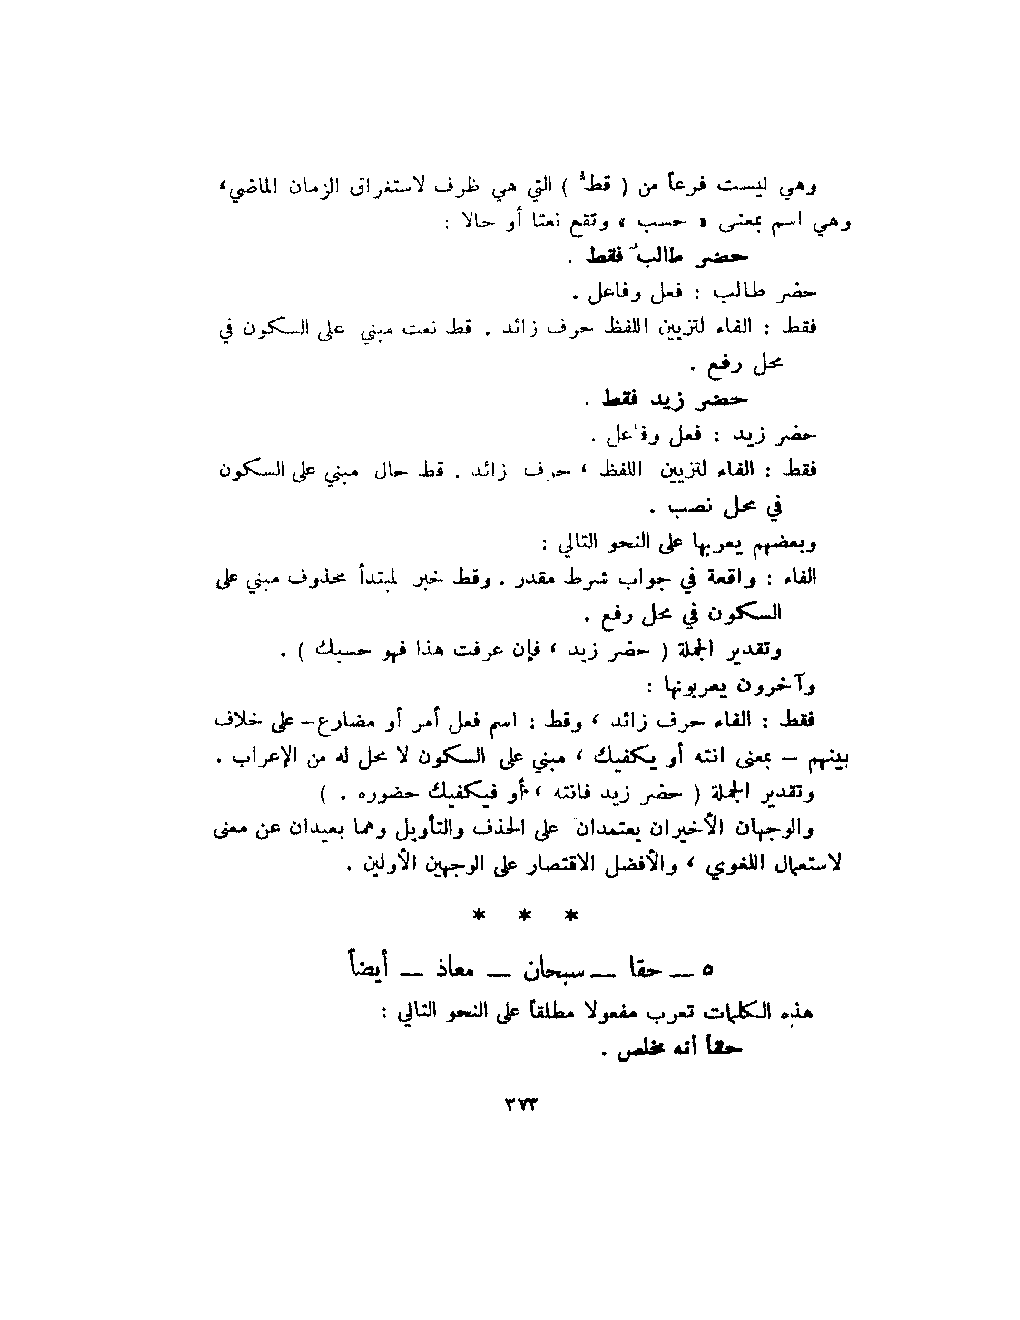 وهي ليست فرعاً من ( قطُّ ) التي هي ظرف لاستغراق الزمان الماضي ،
وهي اسم بمعنى « حسب » وتقع نعتا أو حالا :
حضر طالبٌ فقط .
حضر طالب : فعل وفاعل .
فقط : الفاء لتزيين اللفظ حرف زائد . قط نعت مبني على السكون في
محل رفع .
حضر زيد فقط .
حضر زيد : فعل وفاعل .
فقط : الفاء لتزيين اللفظ ، حرف زائد . قط حال مبني على السكون
في محل نصب .
وبعضهم يعربها على النحو التالي :
الفاء : واقعة في جواب شرط مقدر . وقط خبر لمبتدأ محذوف مبني على
السكون في محل رفع .
وتقدير الجملة ( حضر زيد ، فإن عرفت هذا فهو حسبك ) .
وآخرون يعربونها :
فقط : الفاء حرف زائد ، وقط : اسم فعل أمر أو مضارع – على خلاف
بينهم – بمعنى انته أو يكفيك ، مبني على السكون لا محل له من الإعراب .
وتقدير الجملة ( حضر زيد فانته ، أو فيكفيك حضوره . )
والوجهان الأخيران يعتمدان على الحذف والتأويل وهما بعيدان عن معنى
لاستعمال اللغوي ، والأفضل الاقتصار على الوجهين الأولين .
* * *
٥ – حقا – سبحان – معاذ – أيضاً
هذه الكلمات تعرب مفعولا مطلقاً على النحو التالي :
حقاً أنه مخلص .
٣٧٣